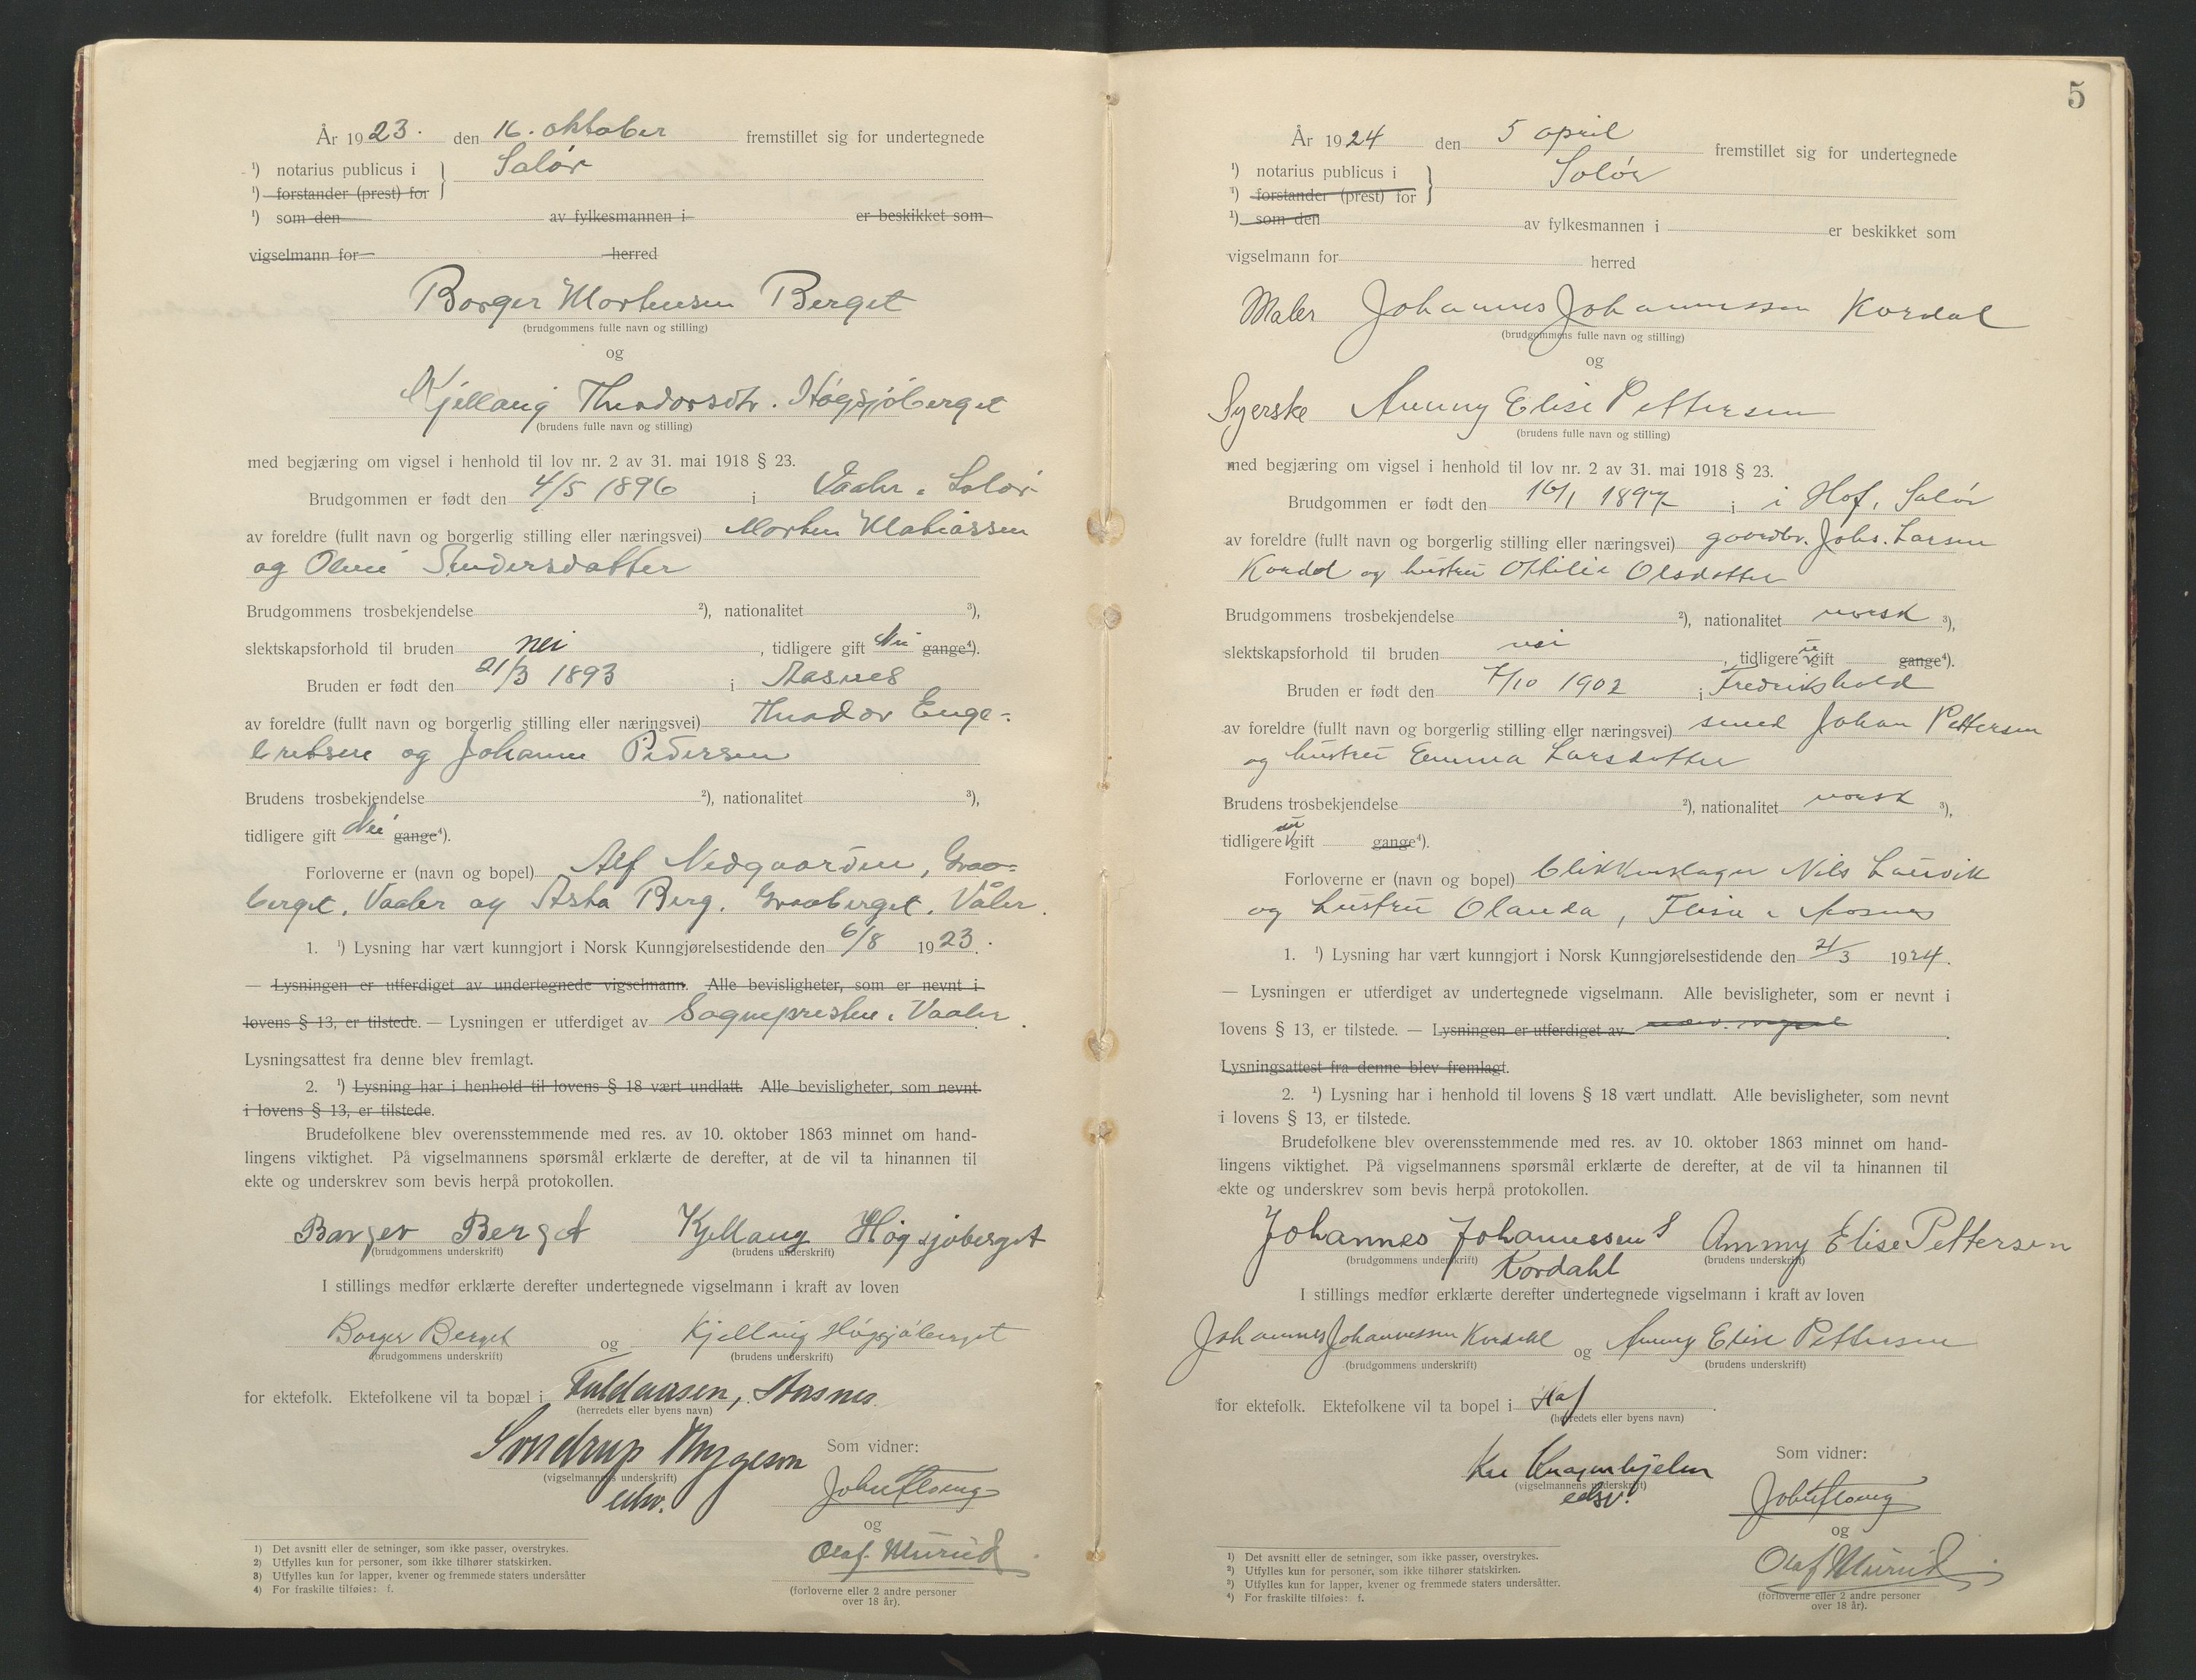 År 1923. den 16. oktober fremstillet sig for undertegnede
¹) notarius publicus i Solør
¹) forstander (prest) for
¹) som den av fylkesmannen i er beskikket som
vigselmann for herred
Borger Mortensen Berget
(brudgommens fulle navn og stilling)
og
Kjellaug Theodorsdtr. Høgsjøberget
(brudens fulle navn og stilling)
med begjæring om vigsel i henhold til lov nr. 2 av 31. mai 1918 § 23.
Brudgommen er født den 4/5 1896 i Vaaler i Solør
av foreldre (fullt navn og borgerlig stilling eller næringsvei) Morten Matiassen
og Oline Andersdatter
Brudgommens trosbekjendelse ²), nationalitet ³),
slektskapsforhold til bruden nei , tidligere gift Nei gange⁴).
Bruden er født den 21/3 1893 i Aasnes
av foreldre (fullt navn og borgerlig stilling eller næringsvei) Theodor Enge-
bretsen og Johanne Pedersen
Brudens trosbekjendelse ²), nationalitet ³),
tidligere gift Nei gange⁴).
Forloverne er (navn og bopel) Alf Nedgaarden, Graa-
berget, Vaaler og Asta Berg, Graaberget, Våler.
1. ¹) Lysning har vært kunngjort i Norsk Kunngjørelsestidende den 6/8 1923.
— Lysningen er utferdiget av undertegnede vigselmann. Alle bevisligheter, som er nevnt i
lovens § 13, er tilstede. — Lysningen er utferdiget av Sognepresten i Vaaler.
Lysningsattest fra denne blev fremlagt.
2. ¹) Lysning har i henhold til lovens § 18 vært undlatt. Alle bevisligheter, som nevnt
i lovens § 13, er tilstede.
Brudefolkene blev overensstemmende med res. av 10. oktober 1863 minnet om hand-
lingens viktighet. På vigselmannens spørsmål erklærte de derefter, at de vil ta hinannen til
ekte og underskrev som bevis herpå protokollen.
Borger Berget Kjellaug Høgsjøberget
(brudgommens underskrift) (brudens underskrift)
I stillings medfør erklærte derefter undertegnede vigselmann i kraft av loven
Borger Berget og Kjellaug Høgsjøberget
(brudgommens underskrift) (brudens underskrift)
for ektefolk. Ektefolkene vil ta bopæl i Fuldaasen, Aasnes
(herredets eller byens navn)
Sondrup Mygeson
(vigselmannens underskrift)
edsv.
Som vidner:
John Floeng
og
Olaf Murud
(forloverne eller 2 andre personer
over 18 år).
1) Det avsnitt eller de setninger, som ikke passer, overstrykes.
2) Utfylles kun for personer, som ikke tilhører statskirken.
3) Utfylles kun for lapper, kvener og fremmede staters undersåtter
4) For fraskilte tilføies: f.
5
År 1924 den 5 april fremstillet sig for undertegnede
¹) notarius publicus i Solør
¹) forstander (prest) for
¹) som den av fylkesmannen i er beskikket som
vigselmann for herred
Maler Johannes Johannessen Kordal
(brudgommens fulle navn og stilling)
og
Syerske Ammy Elise Pettersen
(brudens fulle navn og stilling)
med begjæring om vigsel i henhold til lov nr. 2 av 31. mai 1918 § 23.
Brudgommen er født den 16/1 1897 i i Hof, Solør
av foreldre (fullt navn og borgerlig stilling eller næringsvei) gaardbr. Johs. Larsen
Kordal og hustru Othilie Olsdatter
Brudgommens trosbekjendelse ²), nationalitet norsk ³),
slektskapsforhold til bruden nei , tidligere ei gift gange⁴).
Bruden er født den 7/10 1902 i Fredrikshald
av foreldre (fullt navn og borgerlig stilling eller næringsvei) smed Johan Pettersen
og hustru Emma Larsdatter
Brudens trosbekjendelse ²), nationalitet norsk ³),
tidligere ei gift gange⁴).
Forloverne er (navn og bopel) blikkenslager Nils Lauvik
og hustru Olanda, Flisa i Aasnes
1. ¹) Lysning har vært kunngjort i Norsk Kunngjørelsestidende den 21/3 1924.
— Lysningen er utferdiget av undertegnede vigselmann. Alle bevisligheter, som er nevnt i
lovens § 13, er tilstede. — Lysningen er utferdiget av
Lysningsattest fra denne blev fremlagt.
2. ¹) Lysning har i henhold til lovens § 18 vært undlatt. Alle bevisligheter, som nevnt
i lovens § 13, er tilstede.
Brudefolkene blev overensstemmende med res. av 10. oktober 1863 minnet om hand-
lingens viktighet. På vigselmannens spørsmål erklærte de derefter, at de vil ta hinannen til
ekte og underskrev som bevis herpå protokollen.
Johannes Johannessen Ammy Elise Pettersen
(brudgommens underskrift) Kordahl (brudens underskrift)
I stillings medfør erklærte derefter undertegnede vigselmann i kraft av loven
Johannes Johannessen Kordahl og Ammy Elise Pettersen
(brudgommens underskrift) (brudens underskrift)
for ektefolk. Ektefolkene vil ta bopel i Hof.
(herredets eller byens navn)
Knagenhjelm
(vigselmannens underskrift)
edsv.
Som vidner:
John Floeng
og
Olaf Murud
(forloverne eller 2 andre personer
over 18 år).
1) Det avsnitt eller de setninger, som ikke passer, overstrykes.
2) Utfylles kun for personer, som ikke tilhører statskirken.
3) Utfylles kun for lapper, kvener og fremmede staters undersåtter.
4) For fraskilte tilføies: f.